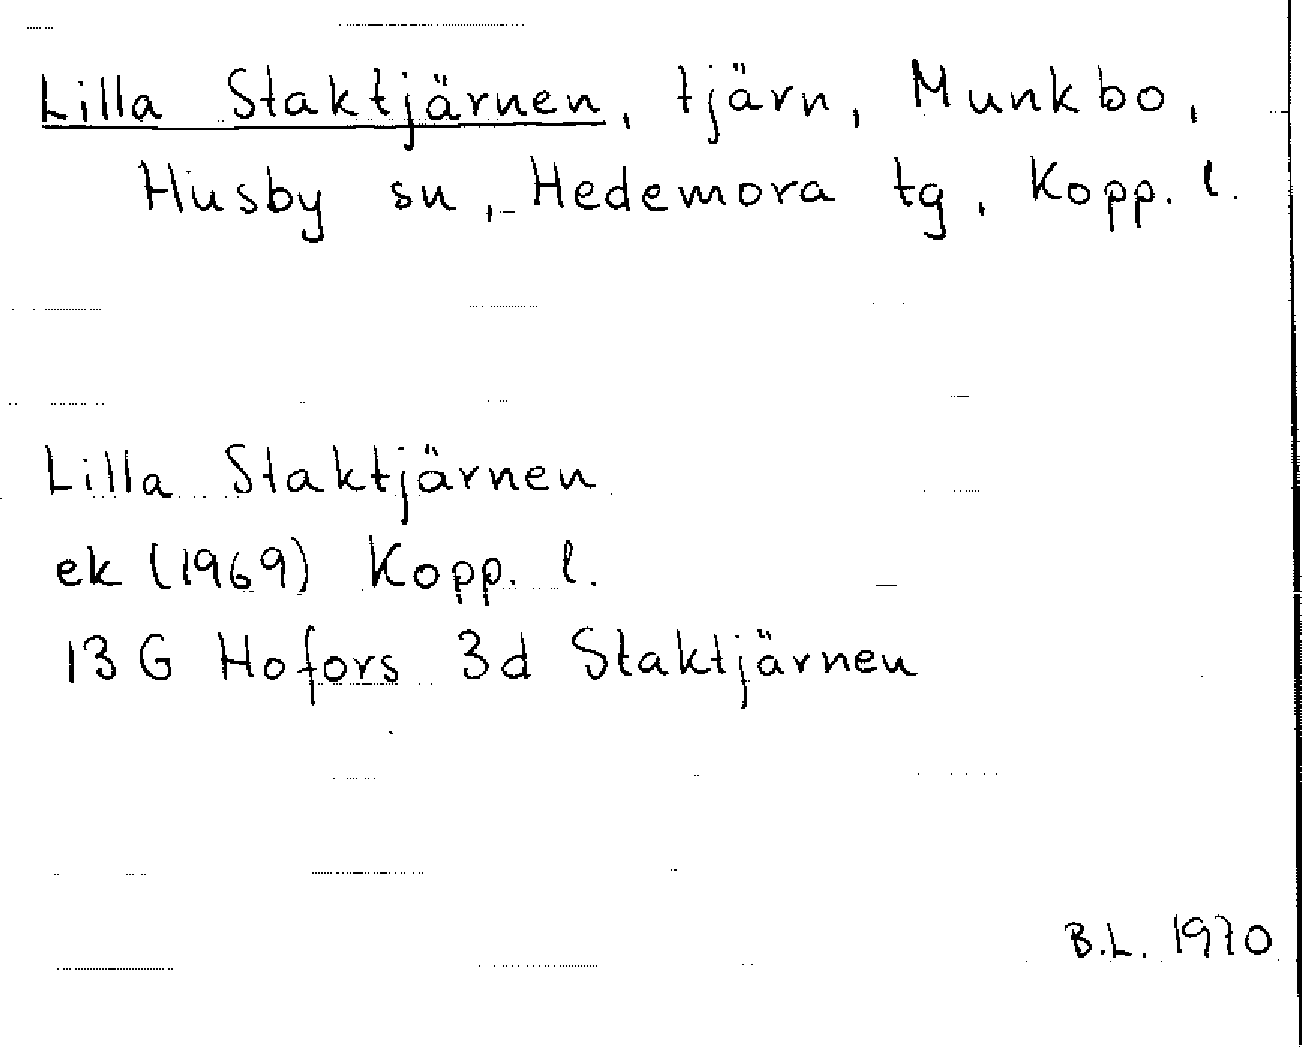 Lilla Staktjärnen, tjärn, Munkbo,
Husby sn, Hedemora tg, Kopp. l.
Lilla Staktjärnen
ek (1969) Kopp. l.
13 G Hofors 3d Staktjärnen
B.L. 1970